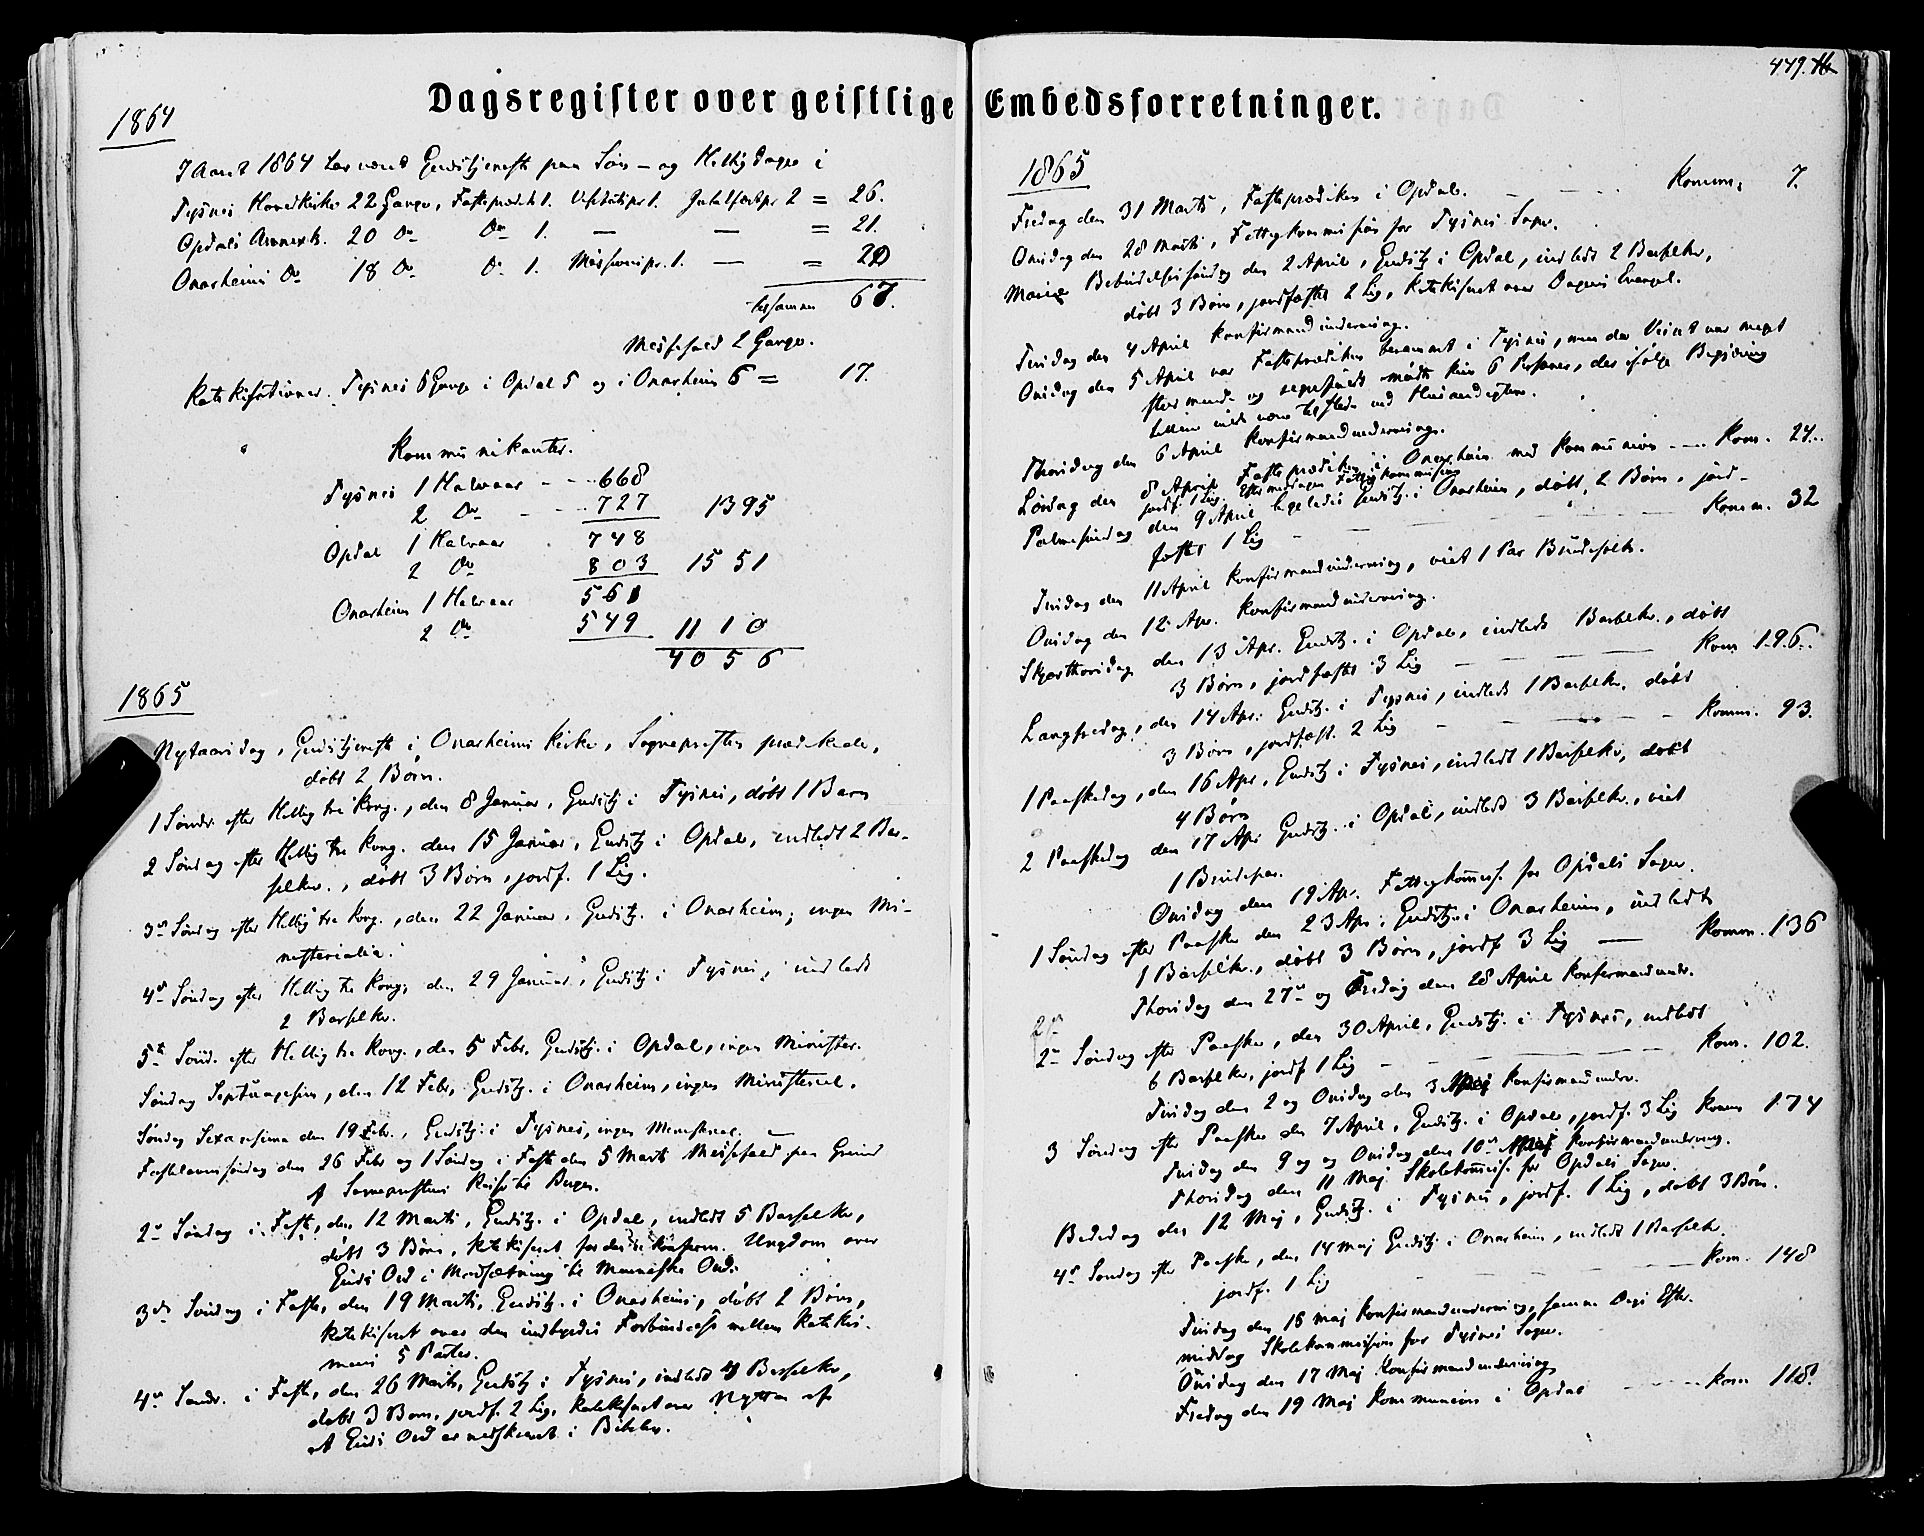 Dagsregister over geistlige Embedsforretninger.
449.
1864
I Aaret 1864 har været Gudstjeneste paa Søn- og Helligdage i
Tysnes Hovedkirke 22 Gange, Fastepræd. 1. Visitatspr. 1. 2 = 26.
Opdals Annexk. 20 Do Do 1. — — = 21.
Onarheims Do 18 Do Do 1. Missionspr. 1. — = 20
tilsammen 67.
Messefald 2 Gange.
Katekisationer. Tysnes 6 Gange i Opdal 5 og i Onarheim 6 = 17.
Kommunikanter.
Tysnes 1 Halvaar - - - 668
2 Do - - - 727 1395
Opdal 1 Halvaar 748
2 Do 803 1551
Onarheim 1 Halvaar 561
2 Do 549 1110
4056
1865
Nytaarsdag, Gudstjeneste i Onarheims Kirke, Sognepresten prædikede,
døbt 2 Børn.
1 Søndr. efter Hellig tre Kong., den 8 Januar, Gudstj. i Tysnes, døbt 1 Barn
2 Søndag efter Hellig tre Kong. den 15 Januar, Gudstj. i Opdal, indledt 2 Bar-
selkr., døbt 3 Børn, jordf. 1 Lig.
3de Søndag efter Hellig tre Kong., den 22 Januar, Gudstj. i Onarheim; ingen Mi-
nisterialia.
4de Søndag efter Hellig tre Kong. den 29 Januar, Gudstj. i Tysnes, indledt
2 Barselkr.
5te Sønd. efter Hellig tre Kong., den 5 Febr. Gudstj. i Opdal, ingen Minister.
Søndag Septuagesima, den 12 Febr. Gudstj. i Onarheim, ingen Ministerial.
Søndag Sexagesima den 19 Febr., Gudstj. i Tysnes, ingen Ministerial.
Fastelavnssøndag den 26 Febr og 1 Søndag i Faste den 5 Marts Messefald paa Grund
af Sogneprestens Reise til Bergen.
2de Søndag i Faste, den 12 Marts, Gudstj. i Opdal, indledt 5 Barselkr,
døbt 3 Børn, katekiseret for den konfirm. Ungdom over
Guds Ord i Modsætning til Menneske Ord.
3die Søndag i Faste, den 19 Marts, Gudstj. i Onarheim, døbt 2 Børn,
katekiseret over den indbyrdes Forbindelse mellem Katekis-
mens 5 Parter.
4de Søndr. i Faste, den 26 Marts, Gudstj. i Tysnes, indledt 4 Barselkr,
døbt 3 Børn, jordf. 2 Lig, katekiseret over Nytten af
at Guds Ord er nedskrevet i Bibelen.
1865
Fredag den 31 Marts, Fasteprædiken i Opdal. — - - - Komm. 7.
Onsdag den 28 Marts, Fattigkommission for Tysnes Sogn.
Mariæ Bebudelsessøndag den 2 April, Gudstj. i Opdal, indledt 2 Barselkr,
døbt 3 Børn, jordfæstet 2 Lig, katekiseret over Dagens Evangel.
Tirsdag den 4 April Konfirmandundervisning.
Onsdag den 5 April var Fasteprædiken berammet i Tysnes, men da Veiret var meget
stormende og regnfuldt mødte kun 6 Personer, der ifølge Begjæring
Thorsdag den 6 April Konfirmandundervisning.
Lørdag den 8 April Fasteprædiken i Onarheim med Kommunion - - - Kom. 24.
jordf. 1 Lig. Eftermiddagen Fattigkommission
Palmesøndag den 9 April ligeledes Gudstj. i Onarheim, døbt 2 Børn, jord-
fæstet 1 Lig — — — Komm. 32
Tirsdag den 11 April Konfirmandundervisning, viet 1 Par Brudefolk.
Onsdag den 12 Apr. Konfirmandundervisning.
Skjærthorsdag den 13 Apr. Gudstj. i Opdal, indledt Barselkr., døbt
3 Børn, jordfæstet 3 Lig — — — Kom 196.
Langfredag, den 14 Apr. Gudstj. i Tysnes, indledt 1 Barselkr, døbt
3 Børn, jordfæst. 2 Lig — — — Komm. 93.
1 Paaskedag, den 16 Apr, Gudstj. i Tysnes, indledt 1 Barselkr, døbt
4 Børn
2 Paaskedag den 17 Apr Gudstj. i Opdal, indledt 3 Barselkr., viet
1 Brudepar.
Onsdag den 19 Apr. Fattigkommiss. for Opdals Sogn.
1 Søndag efter Paaske den 23 Apr. Gudstj. i Onarheim, indledt
1 Barselkr., døbt 3 Børn, jordf 3 Lig — Komm. 136
Thorsdag den 27de og Fredag den 28 April Konfirmandundr.
2de Søndag efter Paaske, den 30 April, Gudstj. i Tysnes, indledt
6 Barselkr, jordf 1 Lig — — — Kom. 102.
Tirsdag den 2 og Onsdag den 3 Maj Konfirmandundr.
3 Søndag efter Paaske den 7 April, Gudstj. i Opdal, jordf. 3 Lig Komm 174
Tirsdag den 9 og og Onsdag den 10de Maj Konfirmandundervisning.
Thorsdag den 11 Maj Skolekommiss. for Opdals Sogn.
Bededag den 12 Maj, Gudstj. i Tysnes, jordf. 1 Lig, døbt 3 Børn.
4de Søndag efter Paaske, den 14 Maj Gudstj. i Onarheim, indledt 1 Barselkr
jordf. 1 Lig — — — Kom. 148
Tirsdag den 16 Maj Konfirmandundervisning, samme Dags Efter-
middag Skolekommission for Tysnes Sogn.
Onsdag den 17 Maj Konfirmandundervisning
Fredag den 19 Maj Kommunion i Opdal - - - - Kom 118.